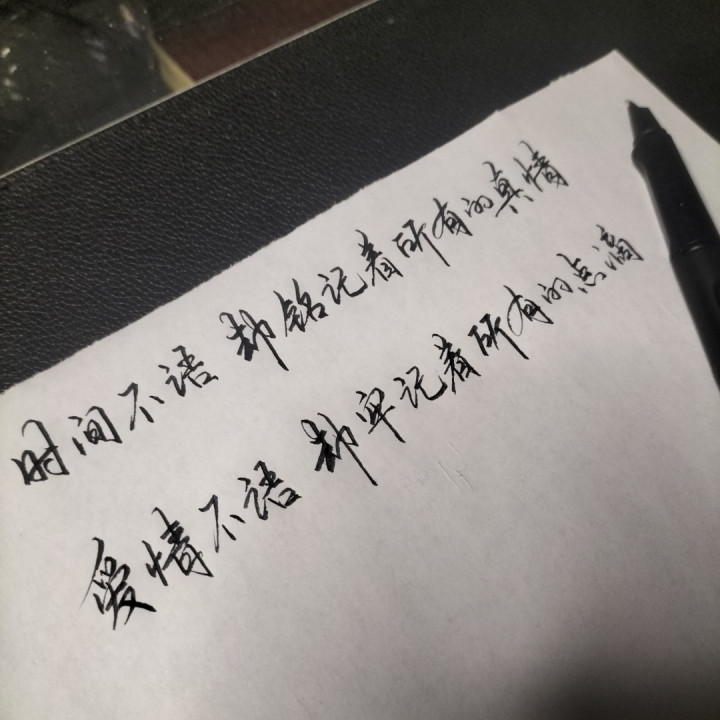 时间不语 却铭记着所有的真情
爱情不语 却牢记着所有的点滴